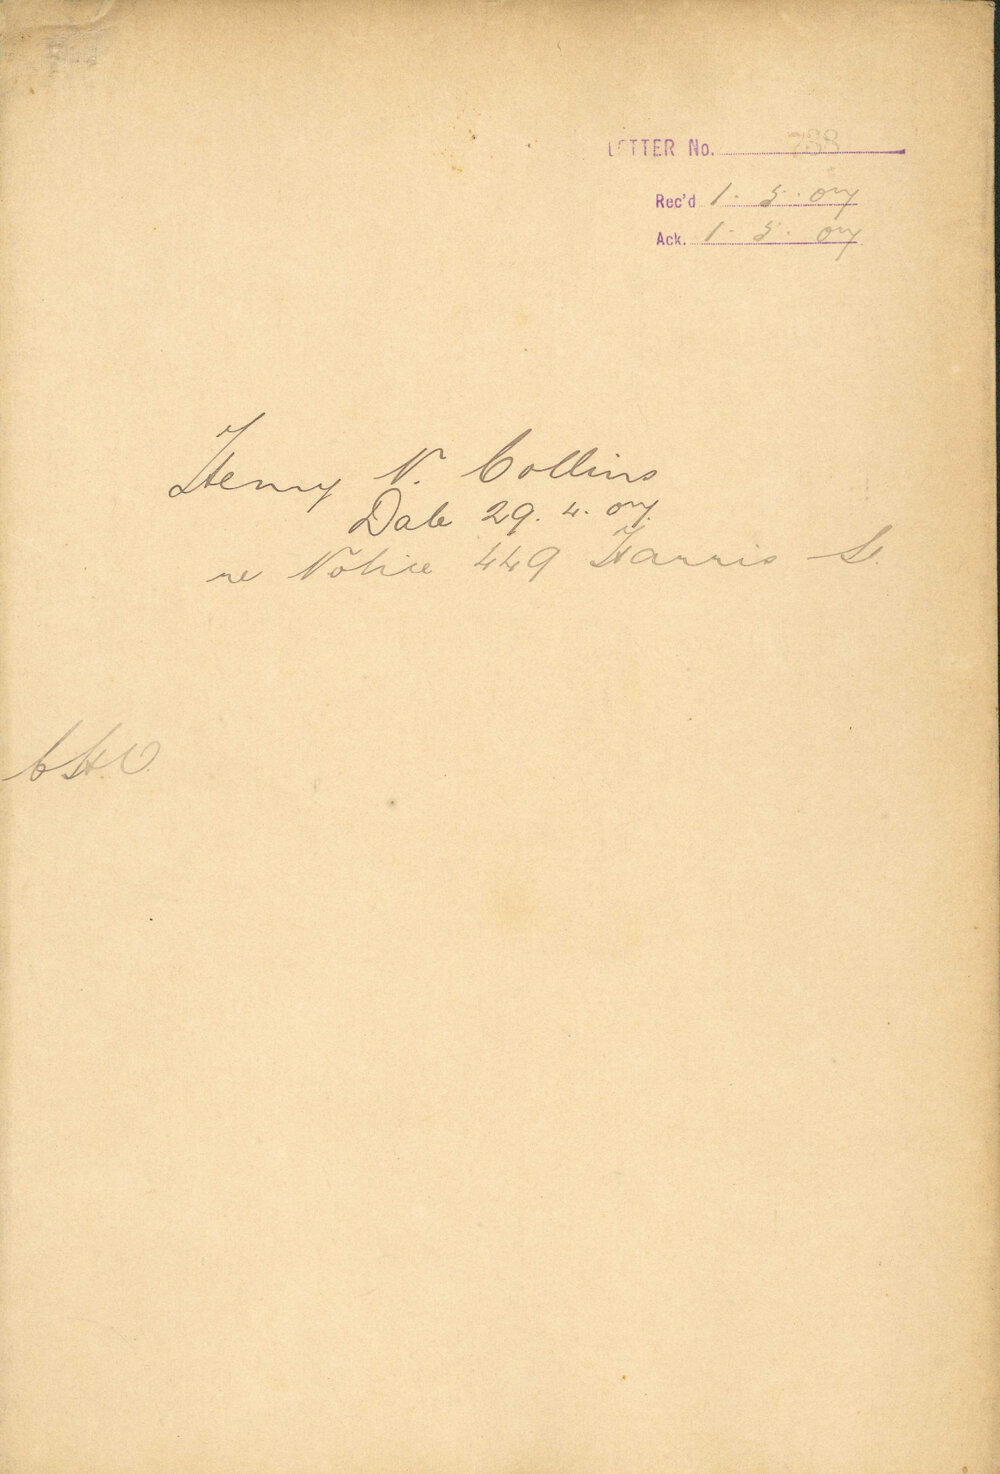 LETTER No. 788
Rec'd 1. 5. 07
Ack. 1. 5. 07
Henry N. Collins
Date 29. 4. 07.
re Notice 449 Harris St.
C.H.O.